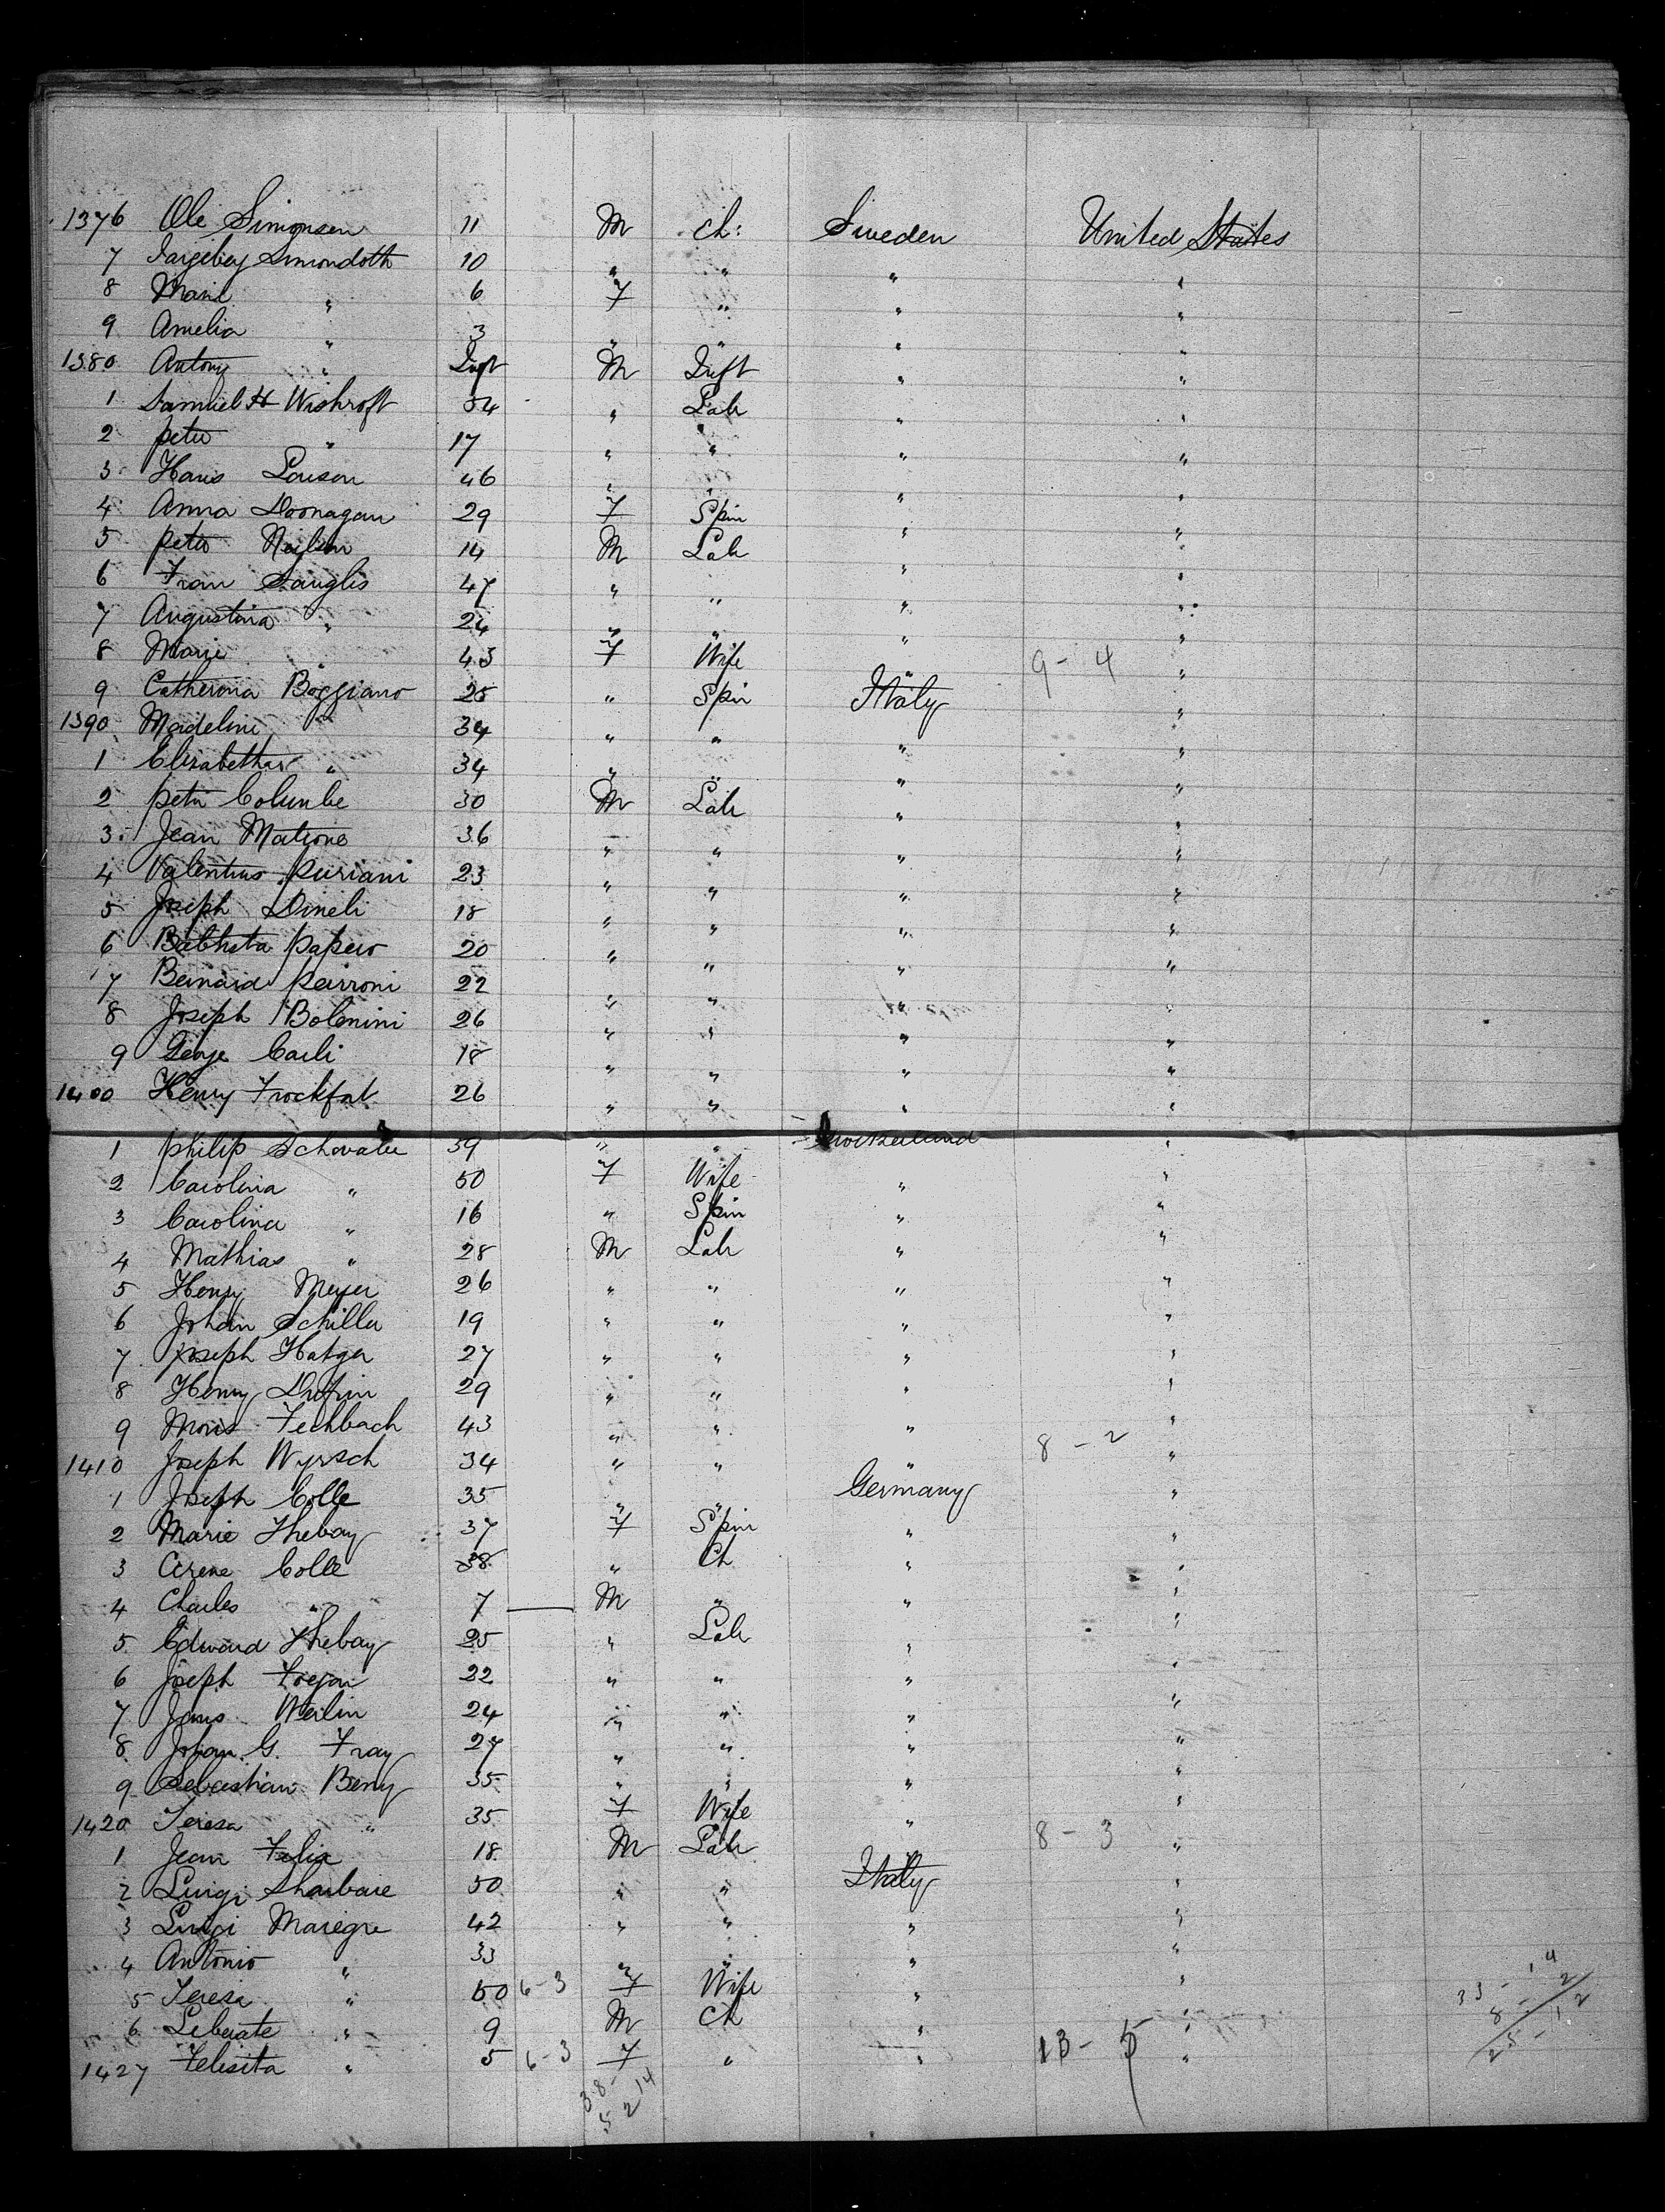 1376 Ole Simonsen 11 M Ch: Sweden United States
7 Simondoth 10 " " " "
8 Marie " 6 F " " "
9 Amelia " 3 " " " "
1380 Antony " Inft M Inft " "
1 Samuel H Wishroft 54 " Lab " "
2 Peter " 17 " " " "
3 Hans Louson 46 " " " "
4 Anna Doonagan 29 F Spin " "
5 Peter Neilson 14 M Lab " "
6 Fran Sanglis 47 " " " "
7 Augustina " 24 " " " "
8 Marie " 43 F Wife " 9-4 "
9 Catherina Boggiano 25 " Spin Italy "
1390 Madelini " 34 " " " "
1 Elizabetha " 34 " " " "
2 Peter Columbe 30 M Lab " "
3 Jean Matrone 36 " " " "
4 Valentino Puriani 23 " " " "
5 Joseph Dineli 18 " " " "
6 Babtista Papero 20 " " " "
7 Bernard Perroni 22 " " " "
8 Joseph Bolenini 26 " " " "
9 George Carli 18 " " " "
1400 Henry Frockfat 26 " " " "
1 Philip Schovaler 59 " " "
2 Carolina " 50 F Wife " "
3 Carolina " 16 " Spin " "
4 Mathias " 28 M Lab " "
5 Henry Meyer 26 " " " "
6 Johan Schiller 19 " " " "
7 Joseph Hatger 27 " " " "
8 Henry 29 " " " "
9 Moris Fechbach 43 " " " "
1410 Joseph Wyrsch 34 " " " 8-2 "
1 Joseph Colle 35 " " Germany "
2 Marie Thebay 37 F Spin " "
3 Cirene Colle 38 " Ch " "
4 Charles " 7 — M " " "
5 Edward Thebay 25 " Lab " "
6 Joseph Trejon 22 " " " "
7 Jams Weilin 24 " " " "
8 Johan G. Fray 27 " " " "
9 Sebastian Beny 35 " " " "
1420 Teresa " 35 F Wife " "
1 Jean Felix 18 M Lab " 8-3 "
2 Luigi Sharbare 50 " " Italy "
3 Luigi Maregre 42 " " " "
4 Antonio " 33 " " " "
5 Teresa " 50 6-3 F Wife " "
6 Leberate " 9 M Ch " "
1427 Felisita " 5 6-3 F " " 13-5 "
38-14
5 2
33-14
8-2
25-12